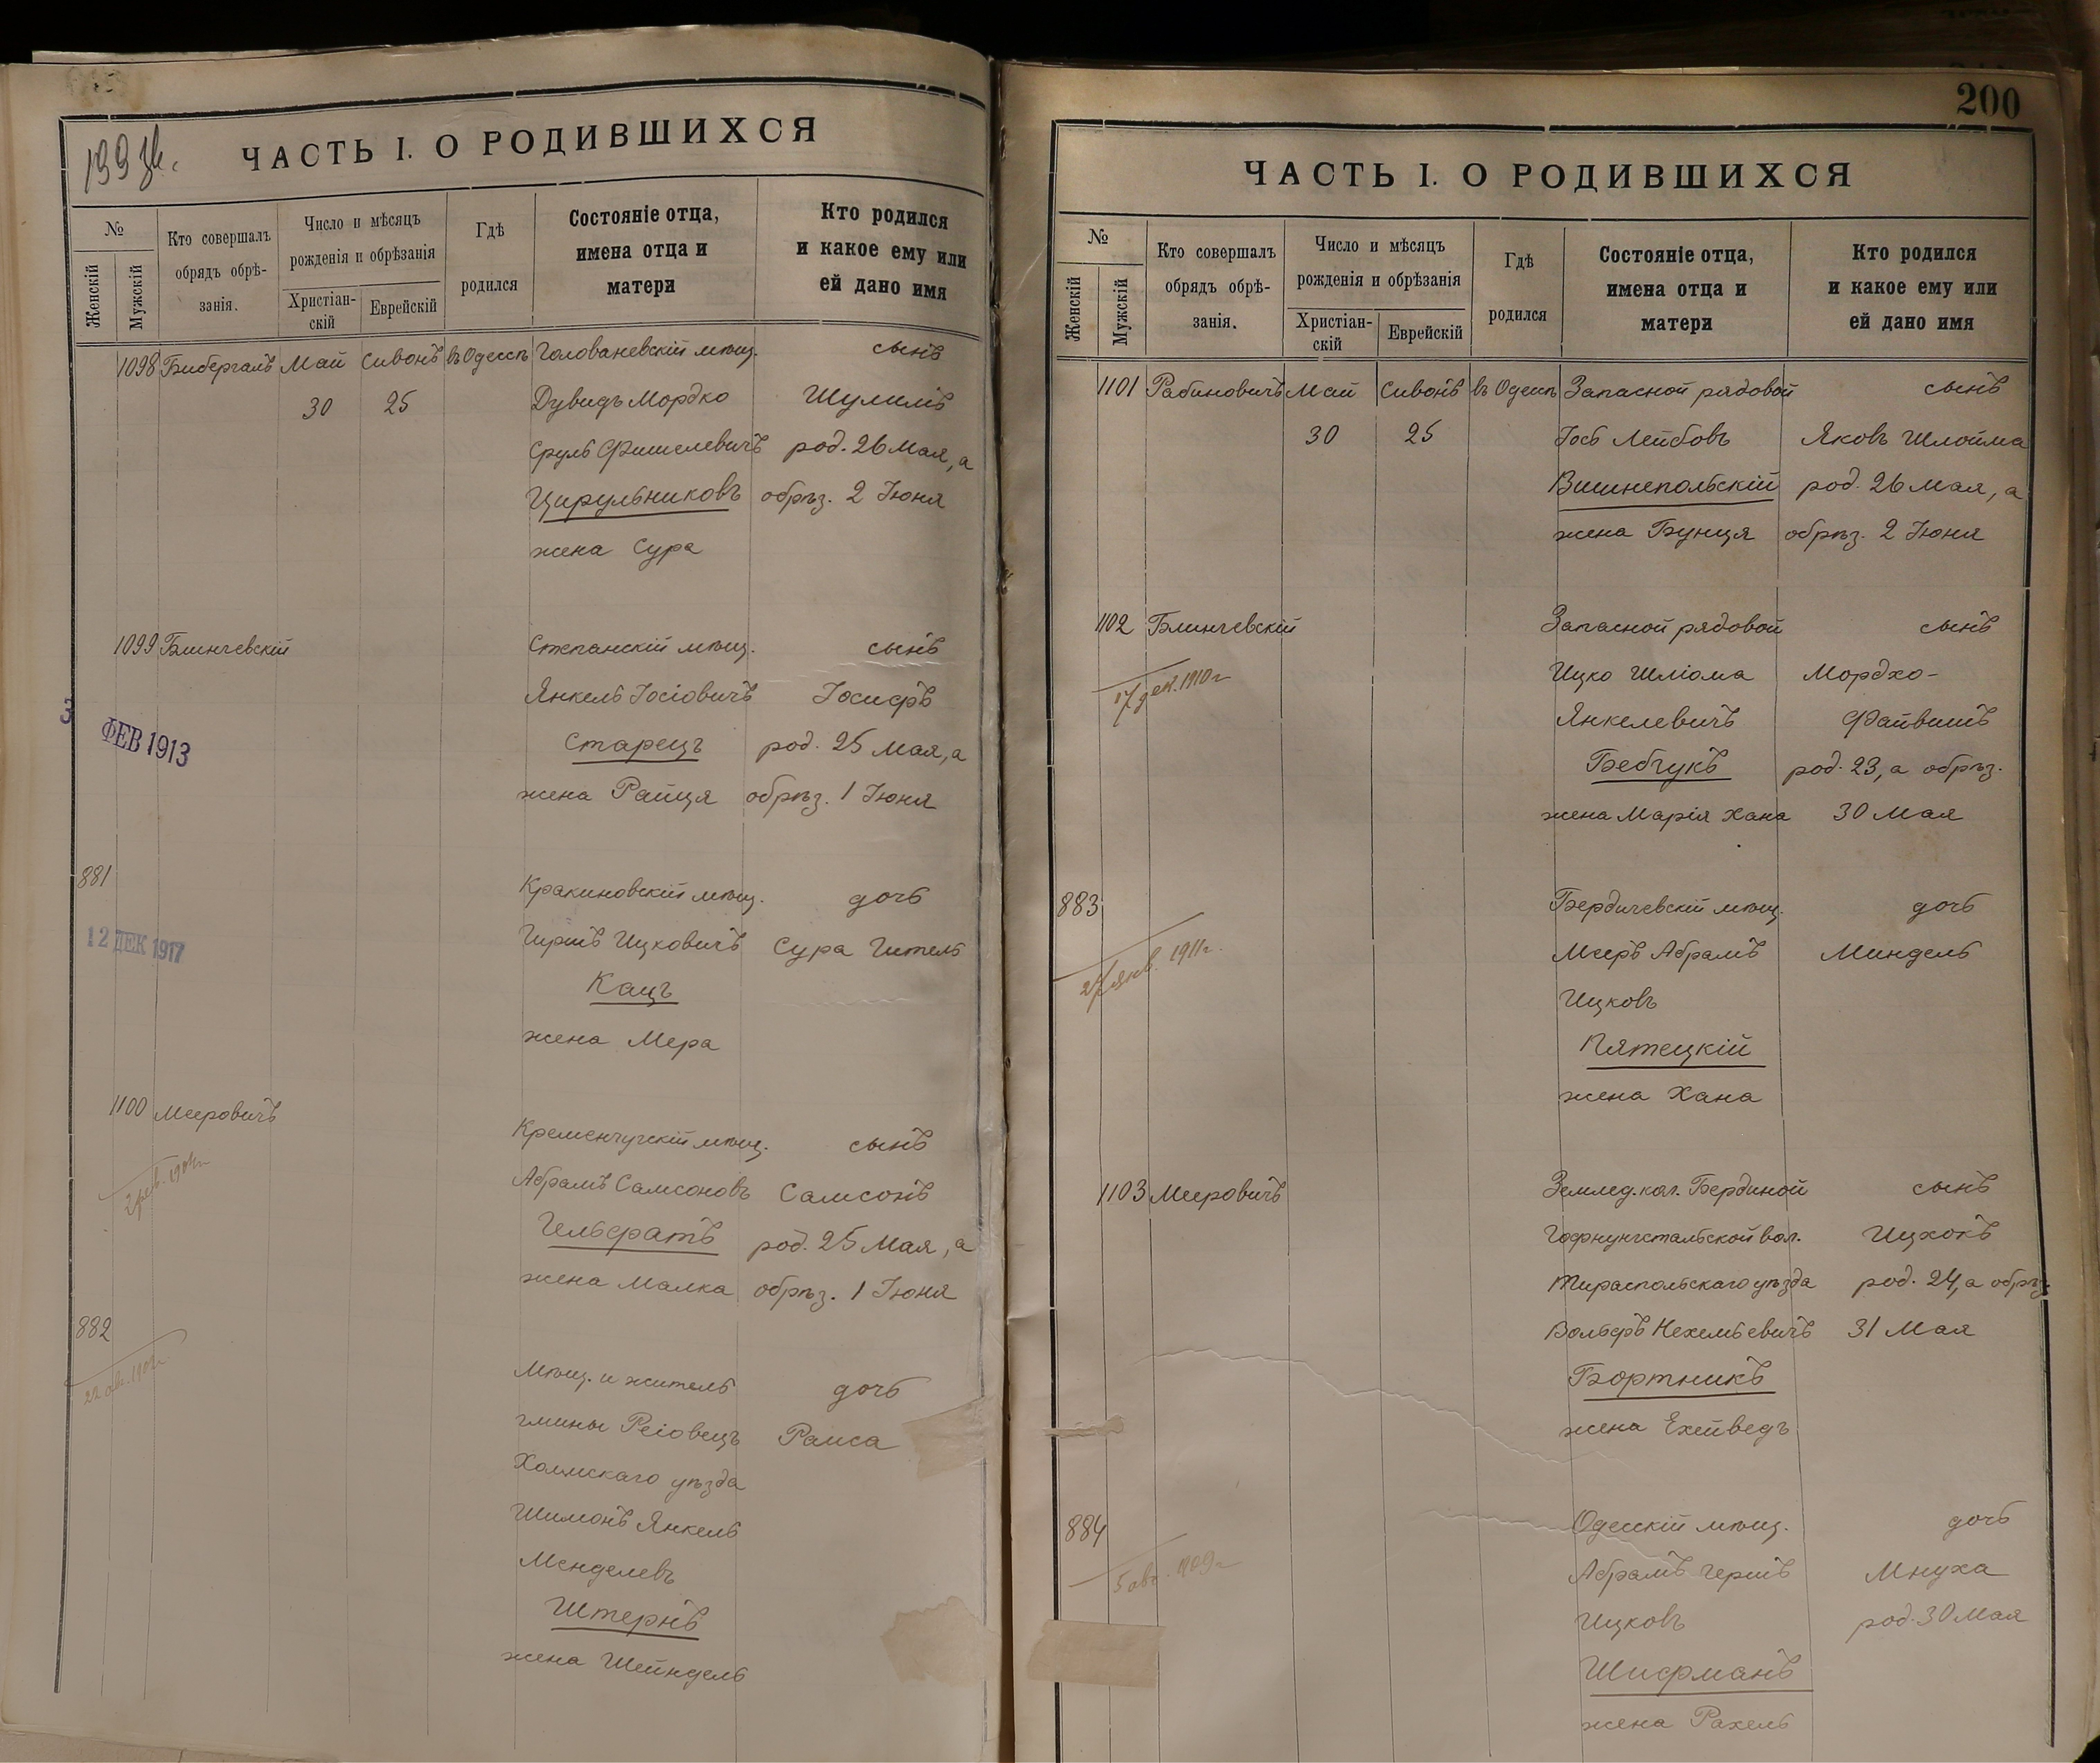 199 зв.
ЧАСТЬ I. О РОДИВШИХСЯ
№
Женскій
Мужскій
Кто совершалъ
обрядъ обрѣ-
занія.
Число и мѣсяцъ
рожденія и обрѣзанія
Христіан-
скій
Еврейскій
Гдѣ
родился
Состояніе отца,
имена отца и
матери
Кто родился
и какое ему или
ей дано имя
1098 Бибергалъ Май Сивонъ въ Одессѣ Голованевскій мѣщ. сынъ
30 25 Дувидъ Мордко Шулимъ
Сруль Фишелевичъ род. 26 Мая, а
Цирульниковъ обрѣз. 2 Іюня
жена Сура
1099 Блинчевскій Степанскій мѣщ. сынъ
Янкель Іосіовичъ Іосифъ
3 ФЕВ 1913 Старецъ род. 25 Мая, а
жена Райця обрѣз. 1 Іюня
881 Кракиновскій мѣщ. дочь
12 ДЕК 1917 Гиршъ Ицковичъ Сура Гитель
Кацъ
жена Мера
1100 Мееровичъ Кременчугскій мѣщ. сынъ
Абрамъ Самсоновъ Самсонъ
Гельфатъ род. 25 Мая, а
жена Малка обрѣз. 1 Іюня
882
Мѣщ. и житель дочь
гмины Реіовецъ Раиса
Холмскаго уѣзда
Шимонъ Янкель
Менделевъ
Штернъ
жена Шейндель
200
ЧАСТЬ I. О РОДИВШИХСЯ
№
Женскій
Мужскій
Кто совершалъ
обрядъ обрѣ-
занія.
Число и мѣсяцъ
рожденія и обрѣзанія
Христіан-
скій
Еврейскій
Гдѣ
родился
Состояніе отца,
имена отца и
матери
Кто родился
и какое ему или
ей дано имя
1101 Рабиновичъ Май Сивонъ въ Одессѣ Запасной рядовой сынъ
30 25 Іось Лейбовъ Яковъ Шлойма
Вишнепольскій род. 26 Мая, а
жена Бунця обрѣз. 2 Іюня
1102 Блинчевскій Запасной рядовой сынъ
17 дек. 1910 г Ицко Шліома Мордхо-
Янкелевичъ Файвишъ
Бебчукъ род. 23, а обрѣз.
жена Марія Хана 30 Мая
883 Бердичевскій мѣщ. дочь
27 янв. 1911 г. Мееръ Абрамъ Миндель
Ицковъ
Пятецкій
жена Хана
1103 Мееровичъ Землед. кол. Бердиной сынъ
Гофнунгстальской вол. Ицхокъ
Тираспольскаго уѣзда род. 24, а обрѣз.
Вольфъ Нехемьевичъ 31 Мая
Бортникъ
жена Ехейведъ
884 Одесскій мѣщ. дочь
5 авг. 1909 г Абрамъ Гершъ Мнуха
Ицковъ род. 30 Мая
Шифманъ
жена Рахель